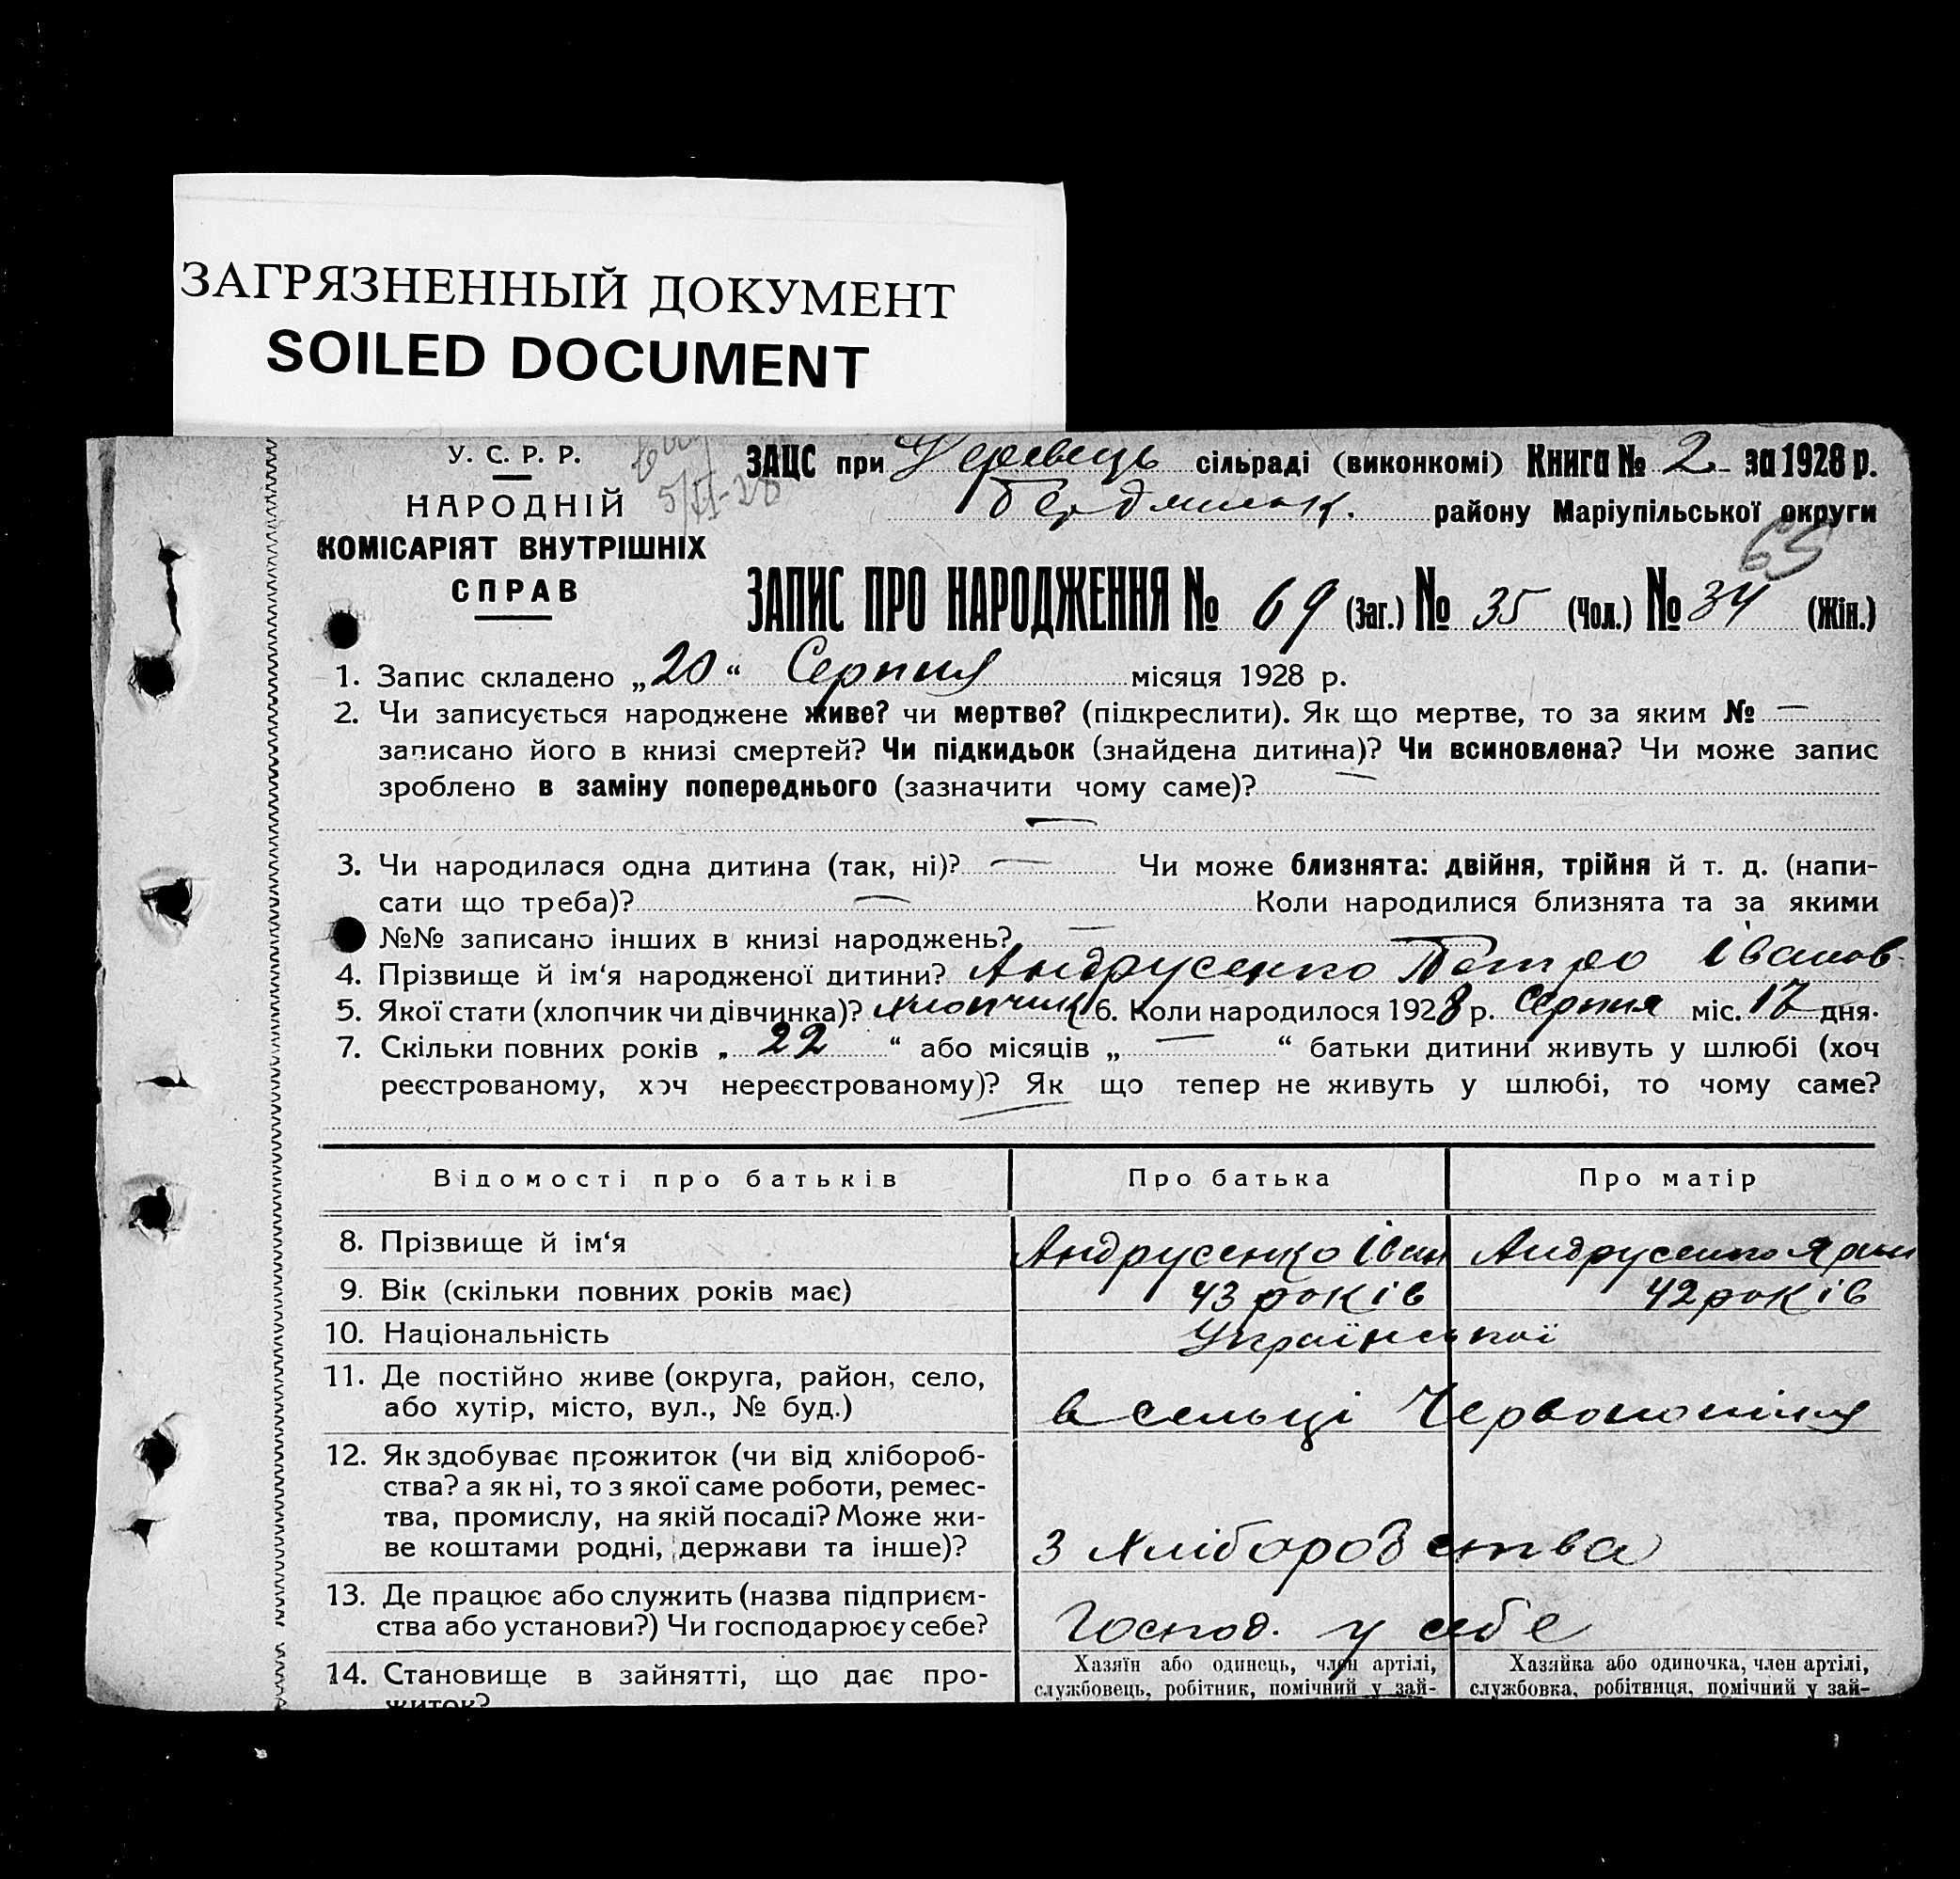 ЗАГРЯЗНЕННЫЙ ДОКУМЕНТ
SOILED DOCUMENT
У. С. Р. Р.
НАРОДНІЙ
КОМІСАРІЯТ ВНУТРІШНІХ
СПРАВ
ЗАЦС при сільраді (виконкомі) Книга № 2 за 1928 р.
району Маріупільської округи
65
ЗАПИС ПРО НАРОДЖЕННЯ № 69 (Заг.) № 35 (Чол.) № 34 (Жін.)
1. Запис складено „20“ Серпня місяця 1928 р.
2. Чи записується народжене живе? чи мертве? (підкреслити). Як що мертве, то за яким № —
записано його в книзі смертей? Чи підкидьок (знайдена дитина)? Чи всиновлена? Чи може запис
зроблено в заміну попереднього (зазначити чому саме)? —
—
3. Чи народилася одна дитина (так, ні)? — Чи може близнята: двійня, трійня й т. д. (напи-
сати що треба)? — Коли народилися близнята та за якими
№№ записано інших в книзі народжень? —
4. Прізвище й ім‘я народженої дитини? Андрусенко Петро Іванов
5. Якої стати (хлопчик чи дівчинка)? хлопчик 6. Коли народилося 1928 р. Серпня міс. 17 дня.
7. Скільки повних років „ 22 “ або місяців „ — “ батьки дитини живуть у шлюбі (хоч
реєстрованому, хоч нереєстрованому)? Як що тепер не живуть у шлюбі, то чому саме?
—
Відомості про батьків Про батька Про матір
8. Прізвище й ім‘я Андрусенко Іван Андрусенко
9. Вік (скільки повних років має) 43 років 42 років
10. Національність Української
11. Де постійно живе (округа, район, село,
або хутір, місто, вул., № буд.) в сельці
12. Як здобуває прожиток (чи від хлібороб-
ства? а як ні, то з якої саме роботи, ремес-
тва, промислу, на якій посаді? Може жи-
ве коштами родні, держави та інше)? З хліборобства
13. Де працює або служить (назва підприєм-
ства або установи?) Чи господарює у себе? Господ. у себе
14. Становище в зайнятті, що дає про-
житок?
Хазяїн або одинець, член артілі,
службовець, робітник, помічний у зай-
Хазяйка або одиночка, член артілі,
службовка, робітниця, помічний у зай-